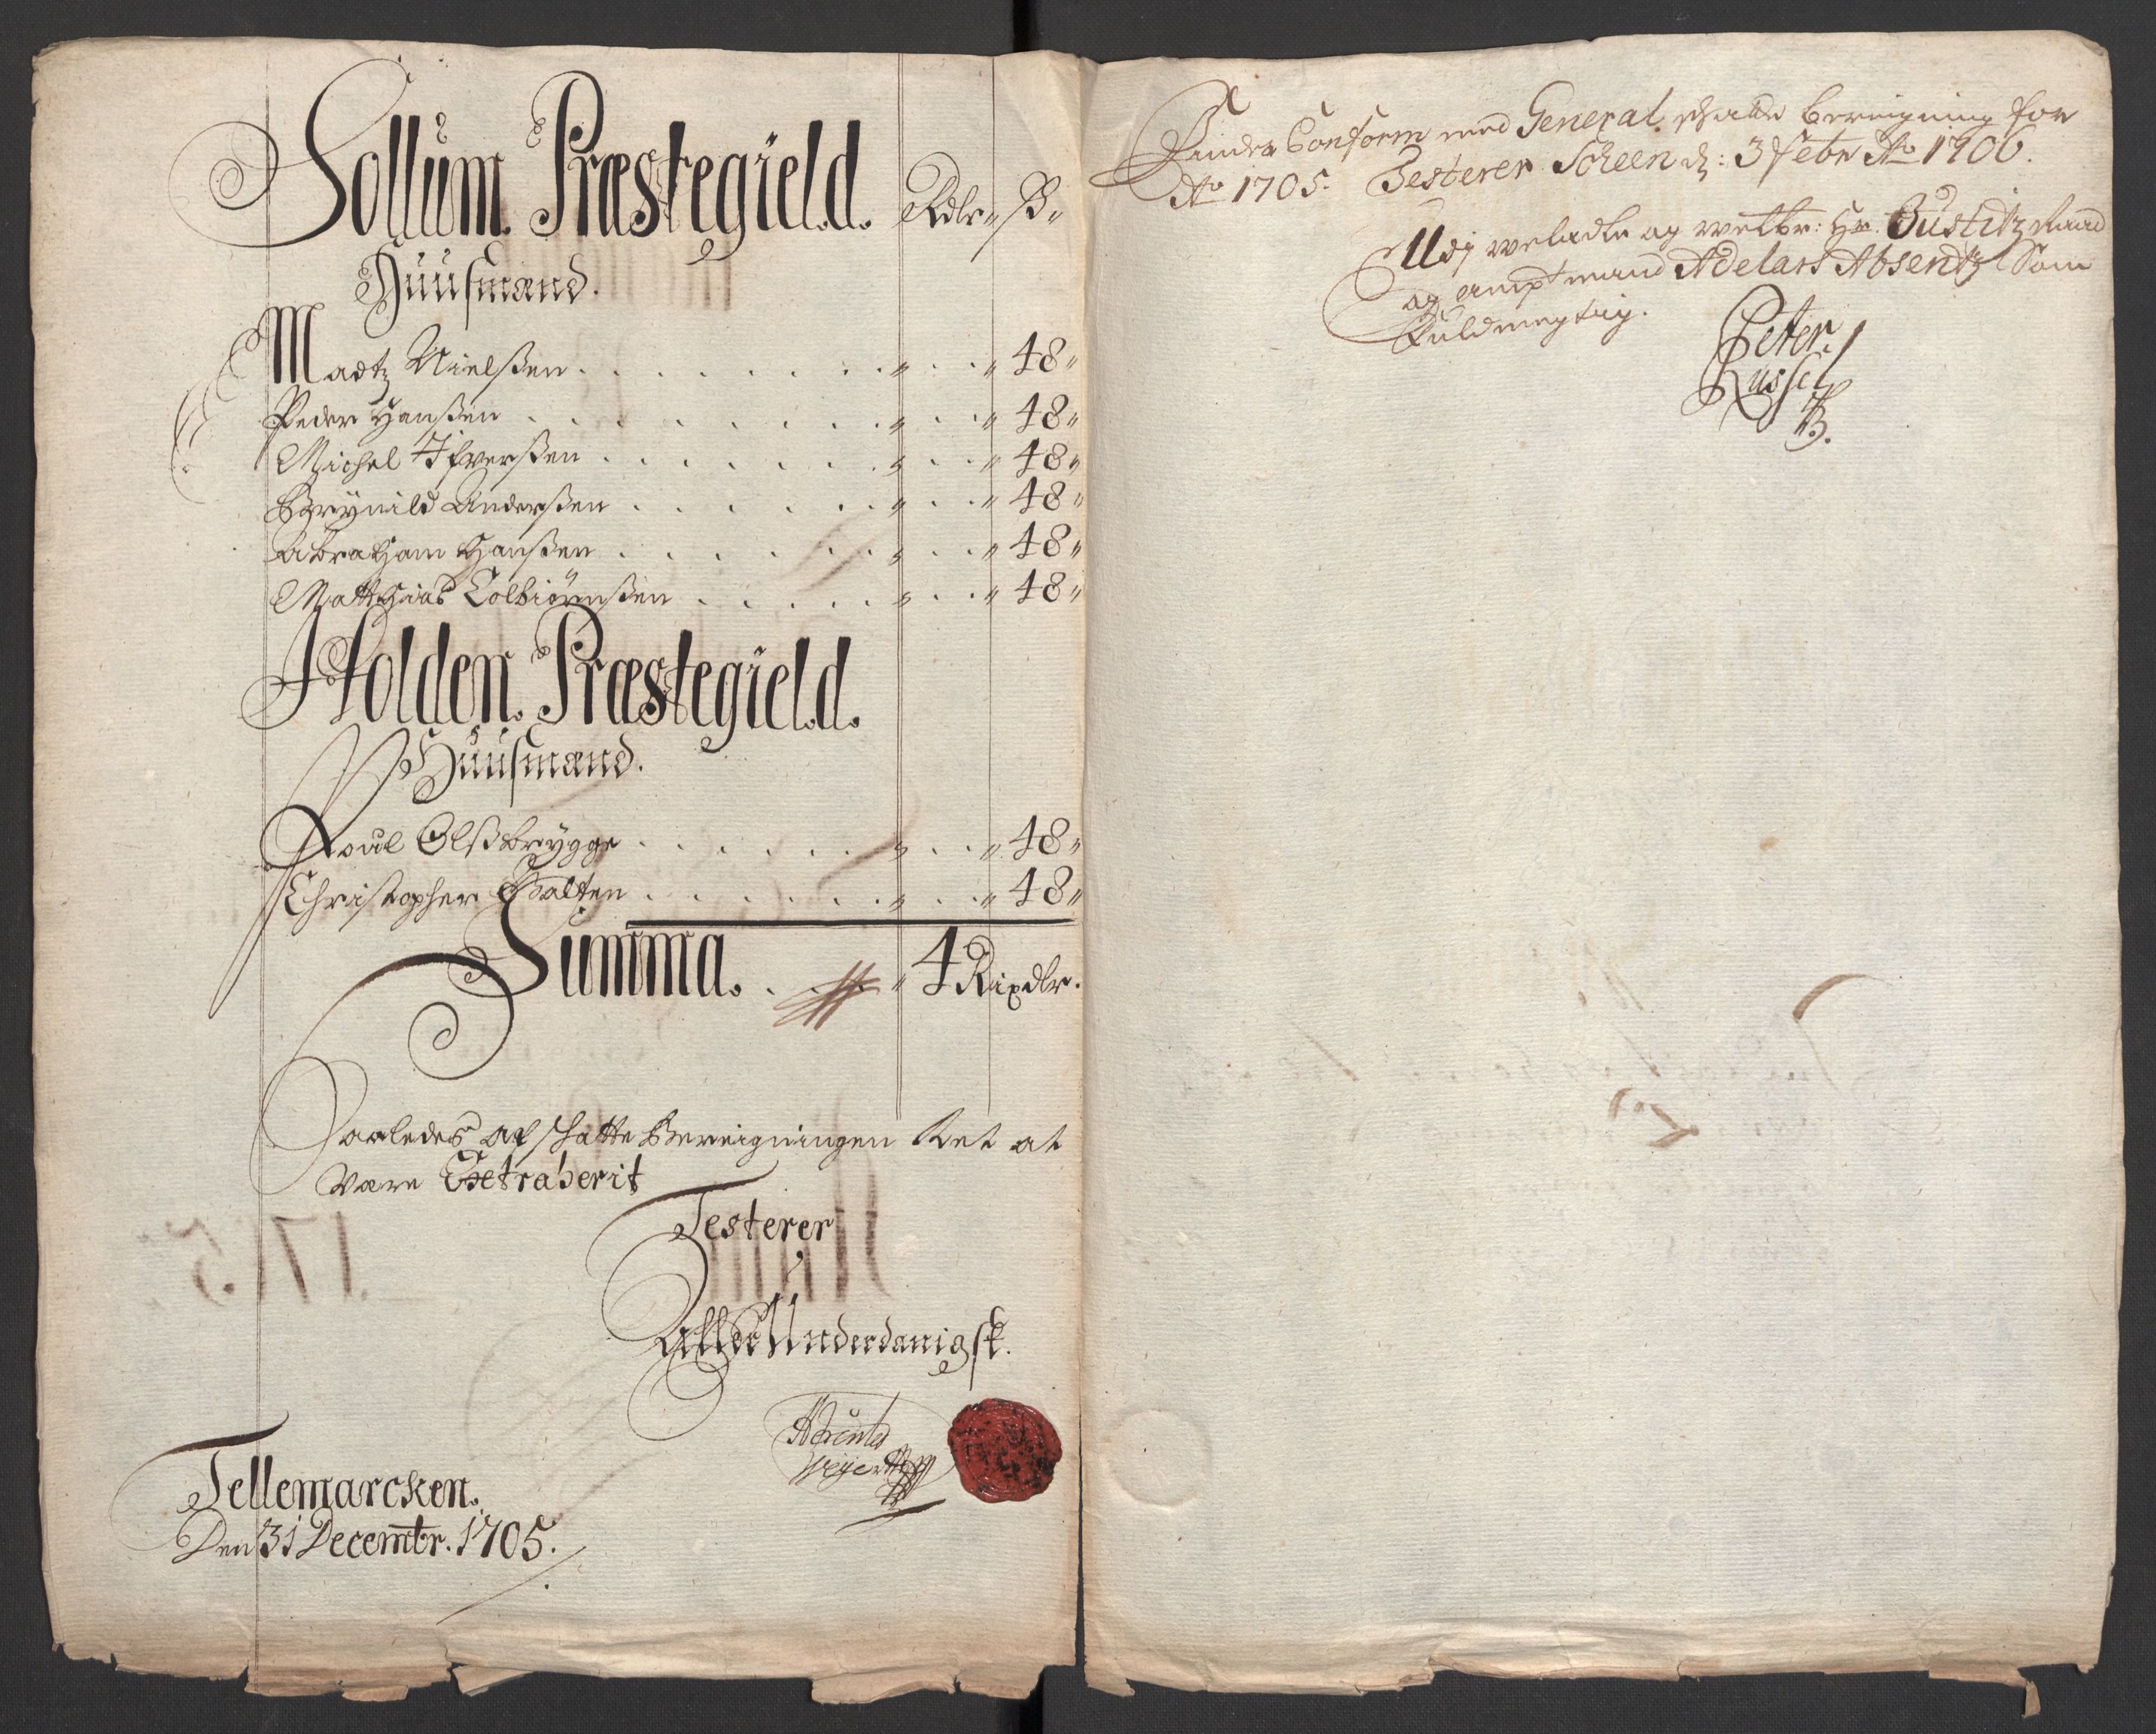 Sollum. Præstegield. Rdlr " ß "
Huusmænd.
Madtz Nielßen . . . . . . . . " . . " 48 "
Peder Hanßen . . . . . . . . " . . " 48 "
Michel Ifverßen . . . . . . . " . . " 48 "
Brynild Anderßen . . . . . . " . . " 48 "
Abraham Hanßen . . . . . . " . . " 48 "
Matthias Colbiörnßen . . . . . " . . " 48 "
Holden. Præstegield.
Huusmænd.
Poul Olßbrygge . . . . . . " . . " 48 "
Christopher Balten . . . . . . " . . " 48 "
Summa. . . . " 4 Rixdlr.
Saaledes af schatte Bereigningen Ret at
være Extraherit
Testerer
Aller Underdanigst.
Weyer
Tellemarcken.
Den 31 Decembr. 1705.
Findes Conform med General schatte bereigning for
Ao 1705. Testerer Scheen d: 3 Febr Ao 1706.
Udj weladle og welbr: Hr. Justitz Raad
og amptmand Adelars Absentz Som
Fuldmegtig.
Peter
Russel